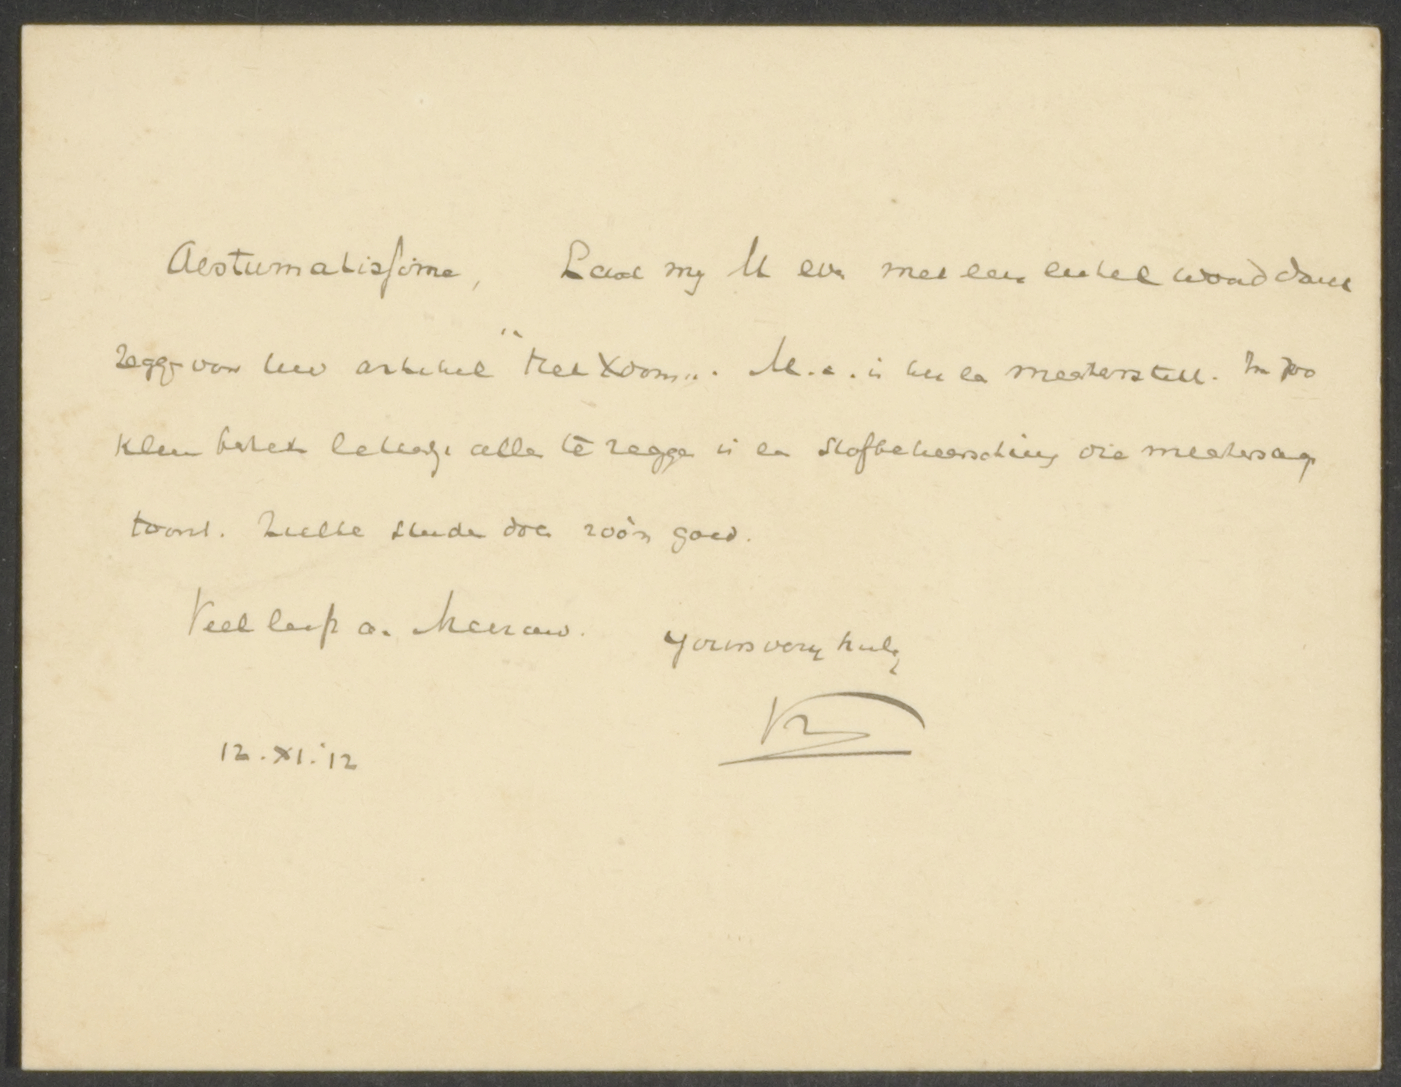 Aestumatissime, Laat mij U even met een enkel woord dank
zeggen voor Uw artikel "Het . M.i. is het een meesterstuk. In zoo
klein bestek alles te zeggen is een stofbeheersching die
toont. Zulke doen zoo'n goed.
Veel a. Mevrouw. Yours very truly
12.XI.'12